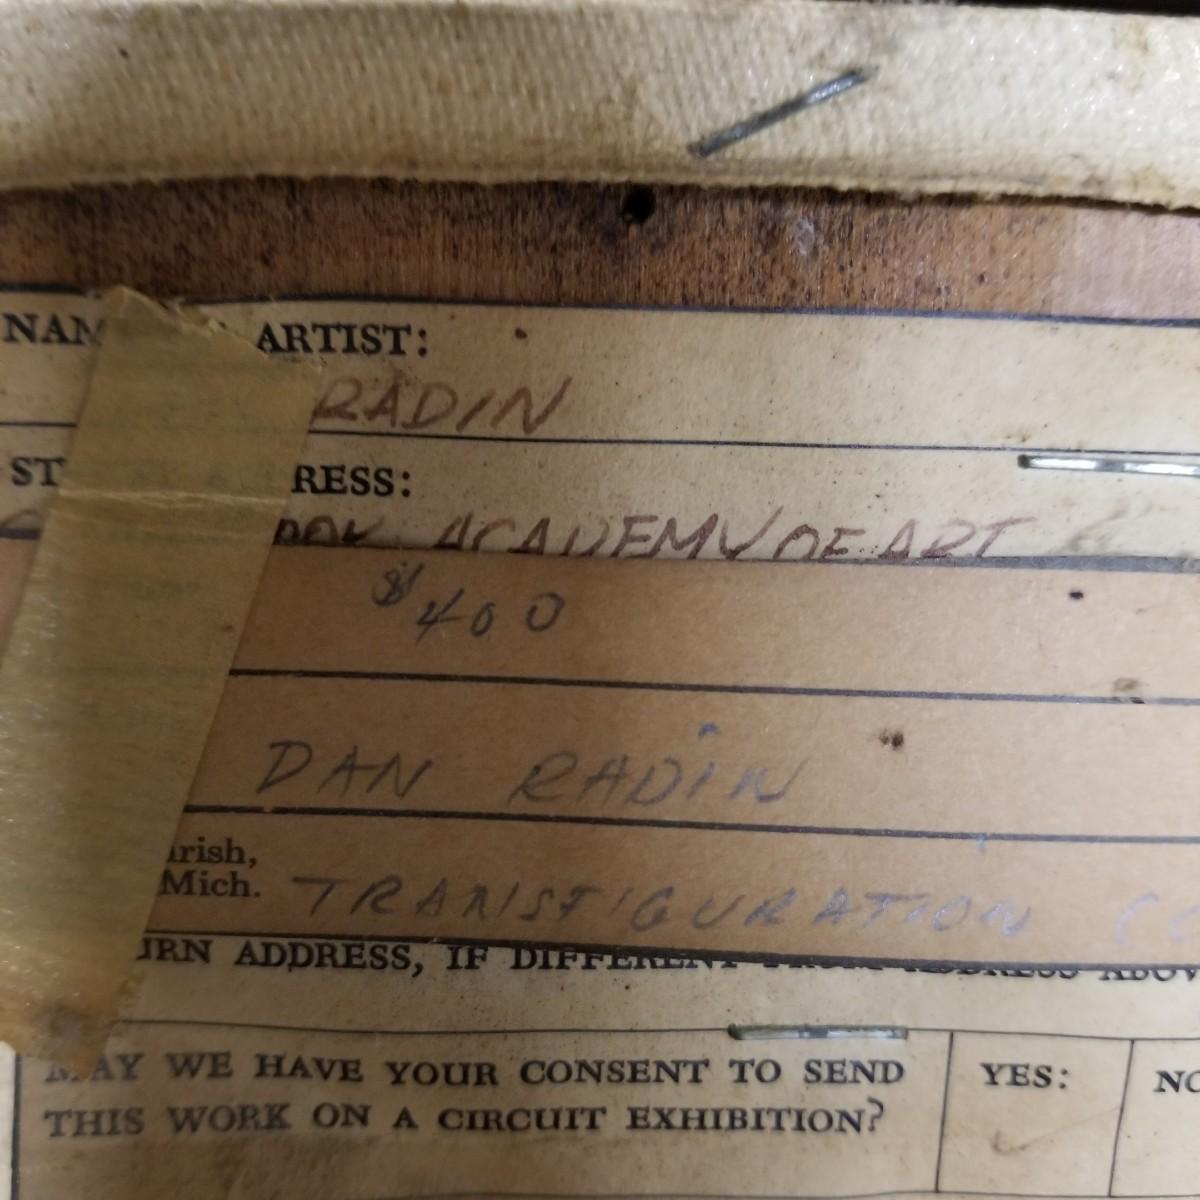 ARTIST:
RADIN
RESS:
ACADEMY OF ART
$400
DAN RADIN
Mich. TRANSFIGURATION
ADDRESS, IF DIFFERENT FROM ADDRESS
MAY WE HAVE YOUR CONSENT TO SEND
THIS WORK ON A CIRCUIT EXHIBITION?
YES: